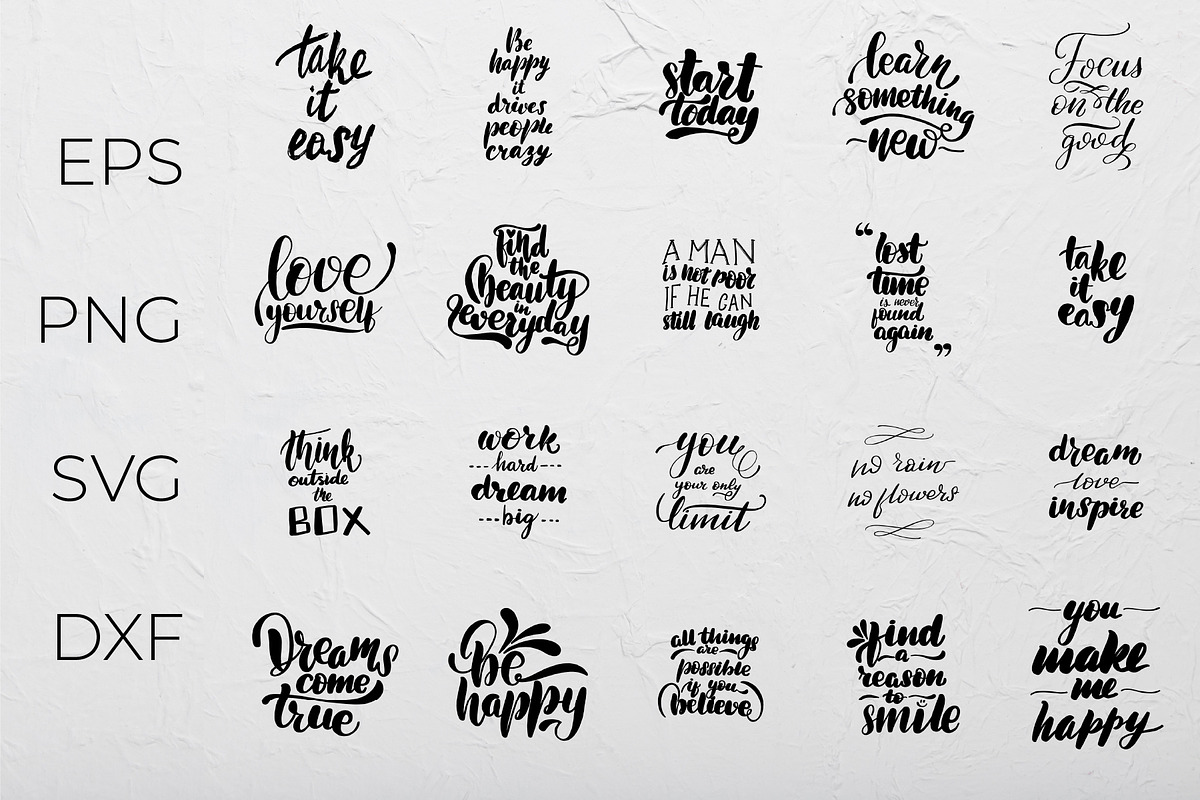 EPS
take
it
easy
Be
happy
it
drives
people
crazy
start
today
learn
something
new
Focus
on the
good
PNG
love
yourself
find
the
beauty
in
everyday
A MAN
is not poor
IF HE CAN
still laugh
“lost
time
is never
found
again„
take
it
easy
SVG
think
outside
the
BOX
work
---hard---
dream
---big---
you
are
your only
limit
no rain
no flowers
dream
love
inspire
DXF
Dreams
come
true
Be
happy
all things
are
possible
if you
believe
find
a
reason
to
smile
you
make
me
happy